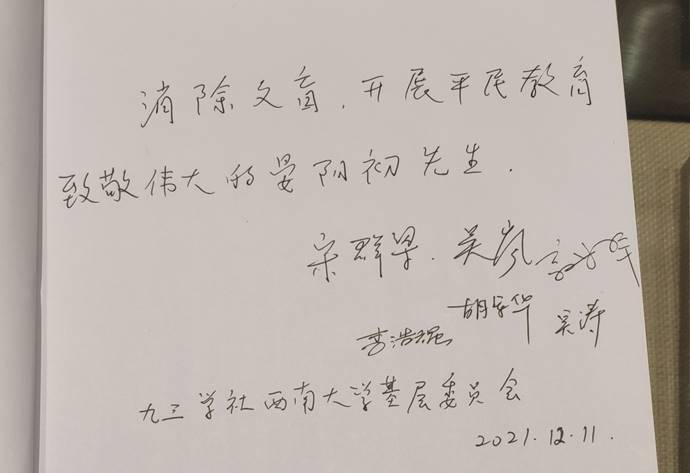 消除文盲,开展平民教育
致敬伟大的晏阳初先生.
宋群梁.吴岚
李浩强 胡安华 吴涛
九三学社西南大学基层委员会
2021.12.11.